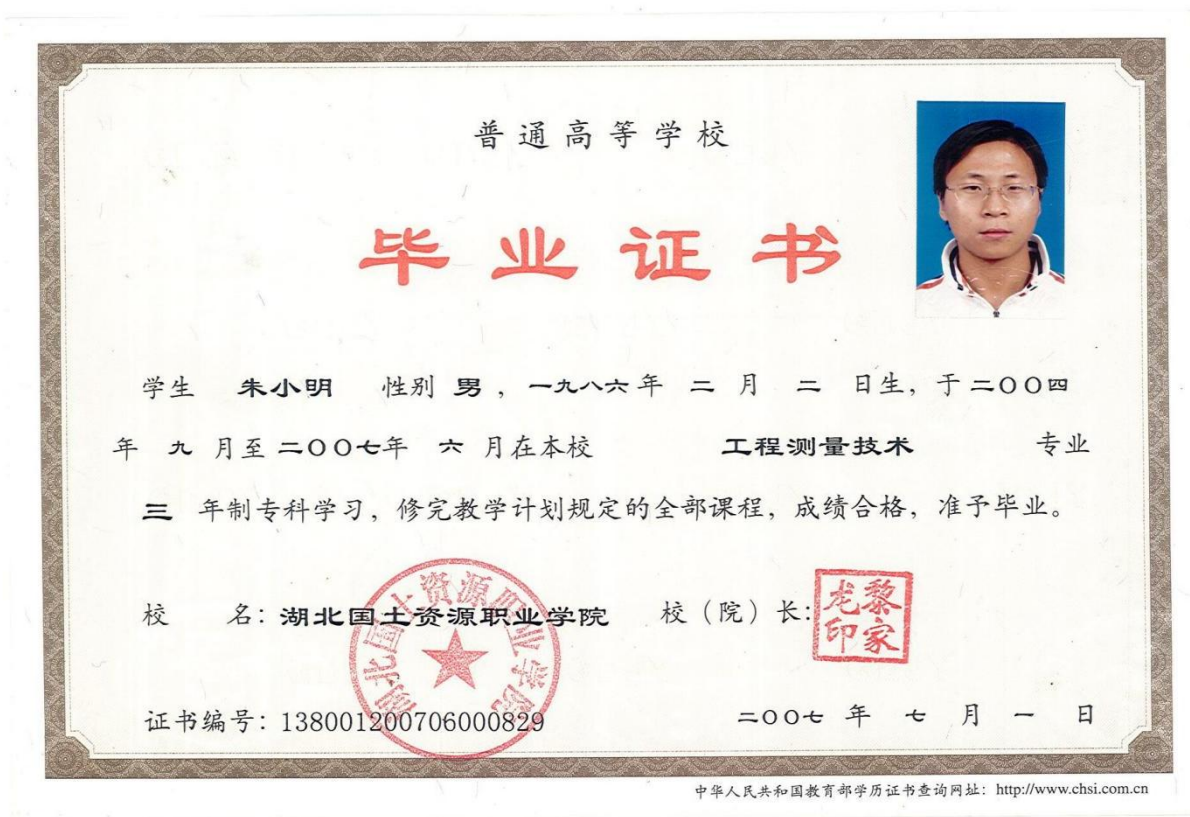 普通高等学校
毕业证书
学生 朱小明 性别 男，一九八六年 二 月 二 日生，于二〇〇四
年 九 月至二〇〇七年 六 月在本校 工程测量技术 专业
三 年制专科学习，修完教学计划规定的全部课程，成绩合格，准予毕业。
校 名：湖北国土资源职业学院 校（院）长：
湖北国土资源职业学院
黎家龙印
证书编号：138001200706000829 二〇〇七 年 七 月 一 日
中华人民共和国教育部学历证书查询网址：http://www.chsi.com.cn